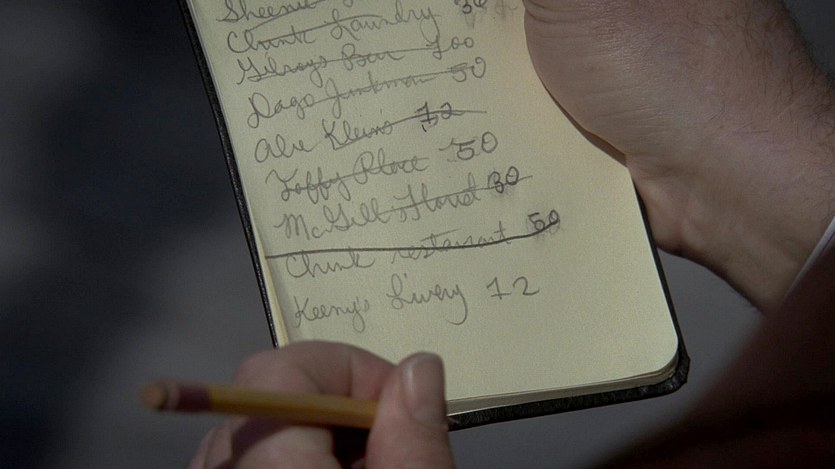 Sheenie
Chink Laundry 30
Gilroy's Bar 100
Dago Junkman 50
Abe Klein's 12
Taffy Place 50
McGill's Florist 30
Chink restaurant 50
Keeny's Livery 12